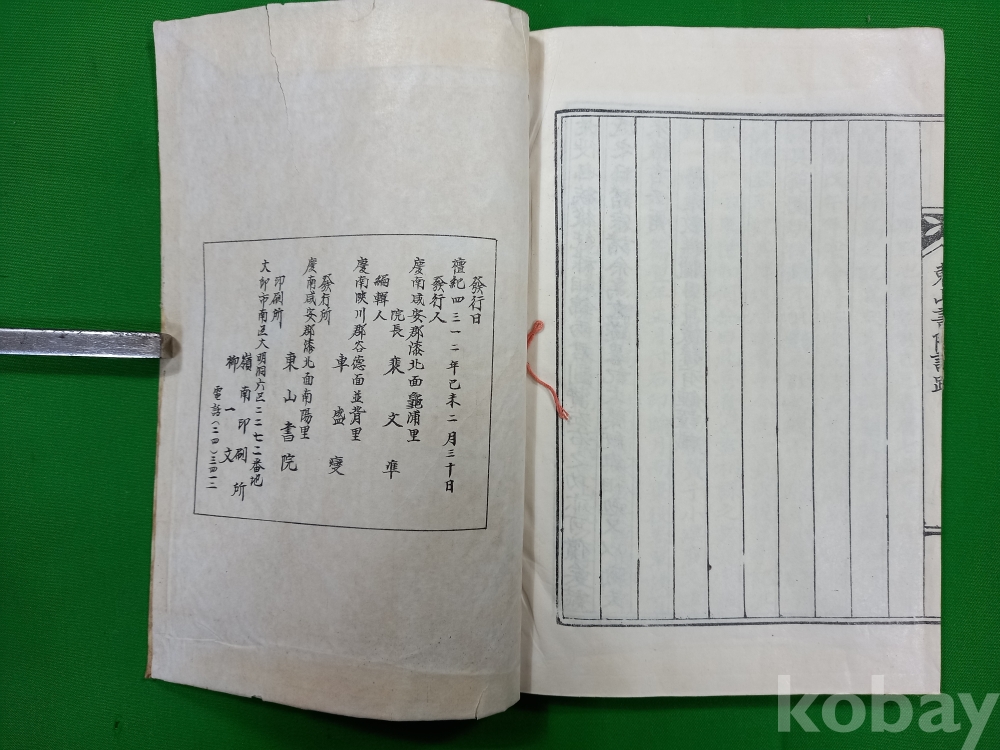 發行日
檀紀四三一二年己未二月三十日
發行人
慶南咸安郡漆北面龜浦里
院長 裵文準
編輯人
慶南陜川郡谷德面並背里
車盛燮
發行所
慶南咸安郡漆北面南陽里
東山書院
印刷所
大邱市南區大明洞六區二二七二番地
嶺南印刷所
柳一文
電話(二四)三四一二
東山書院誌跋
kobay